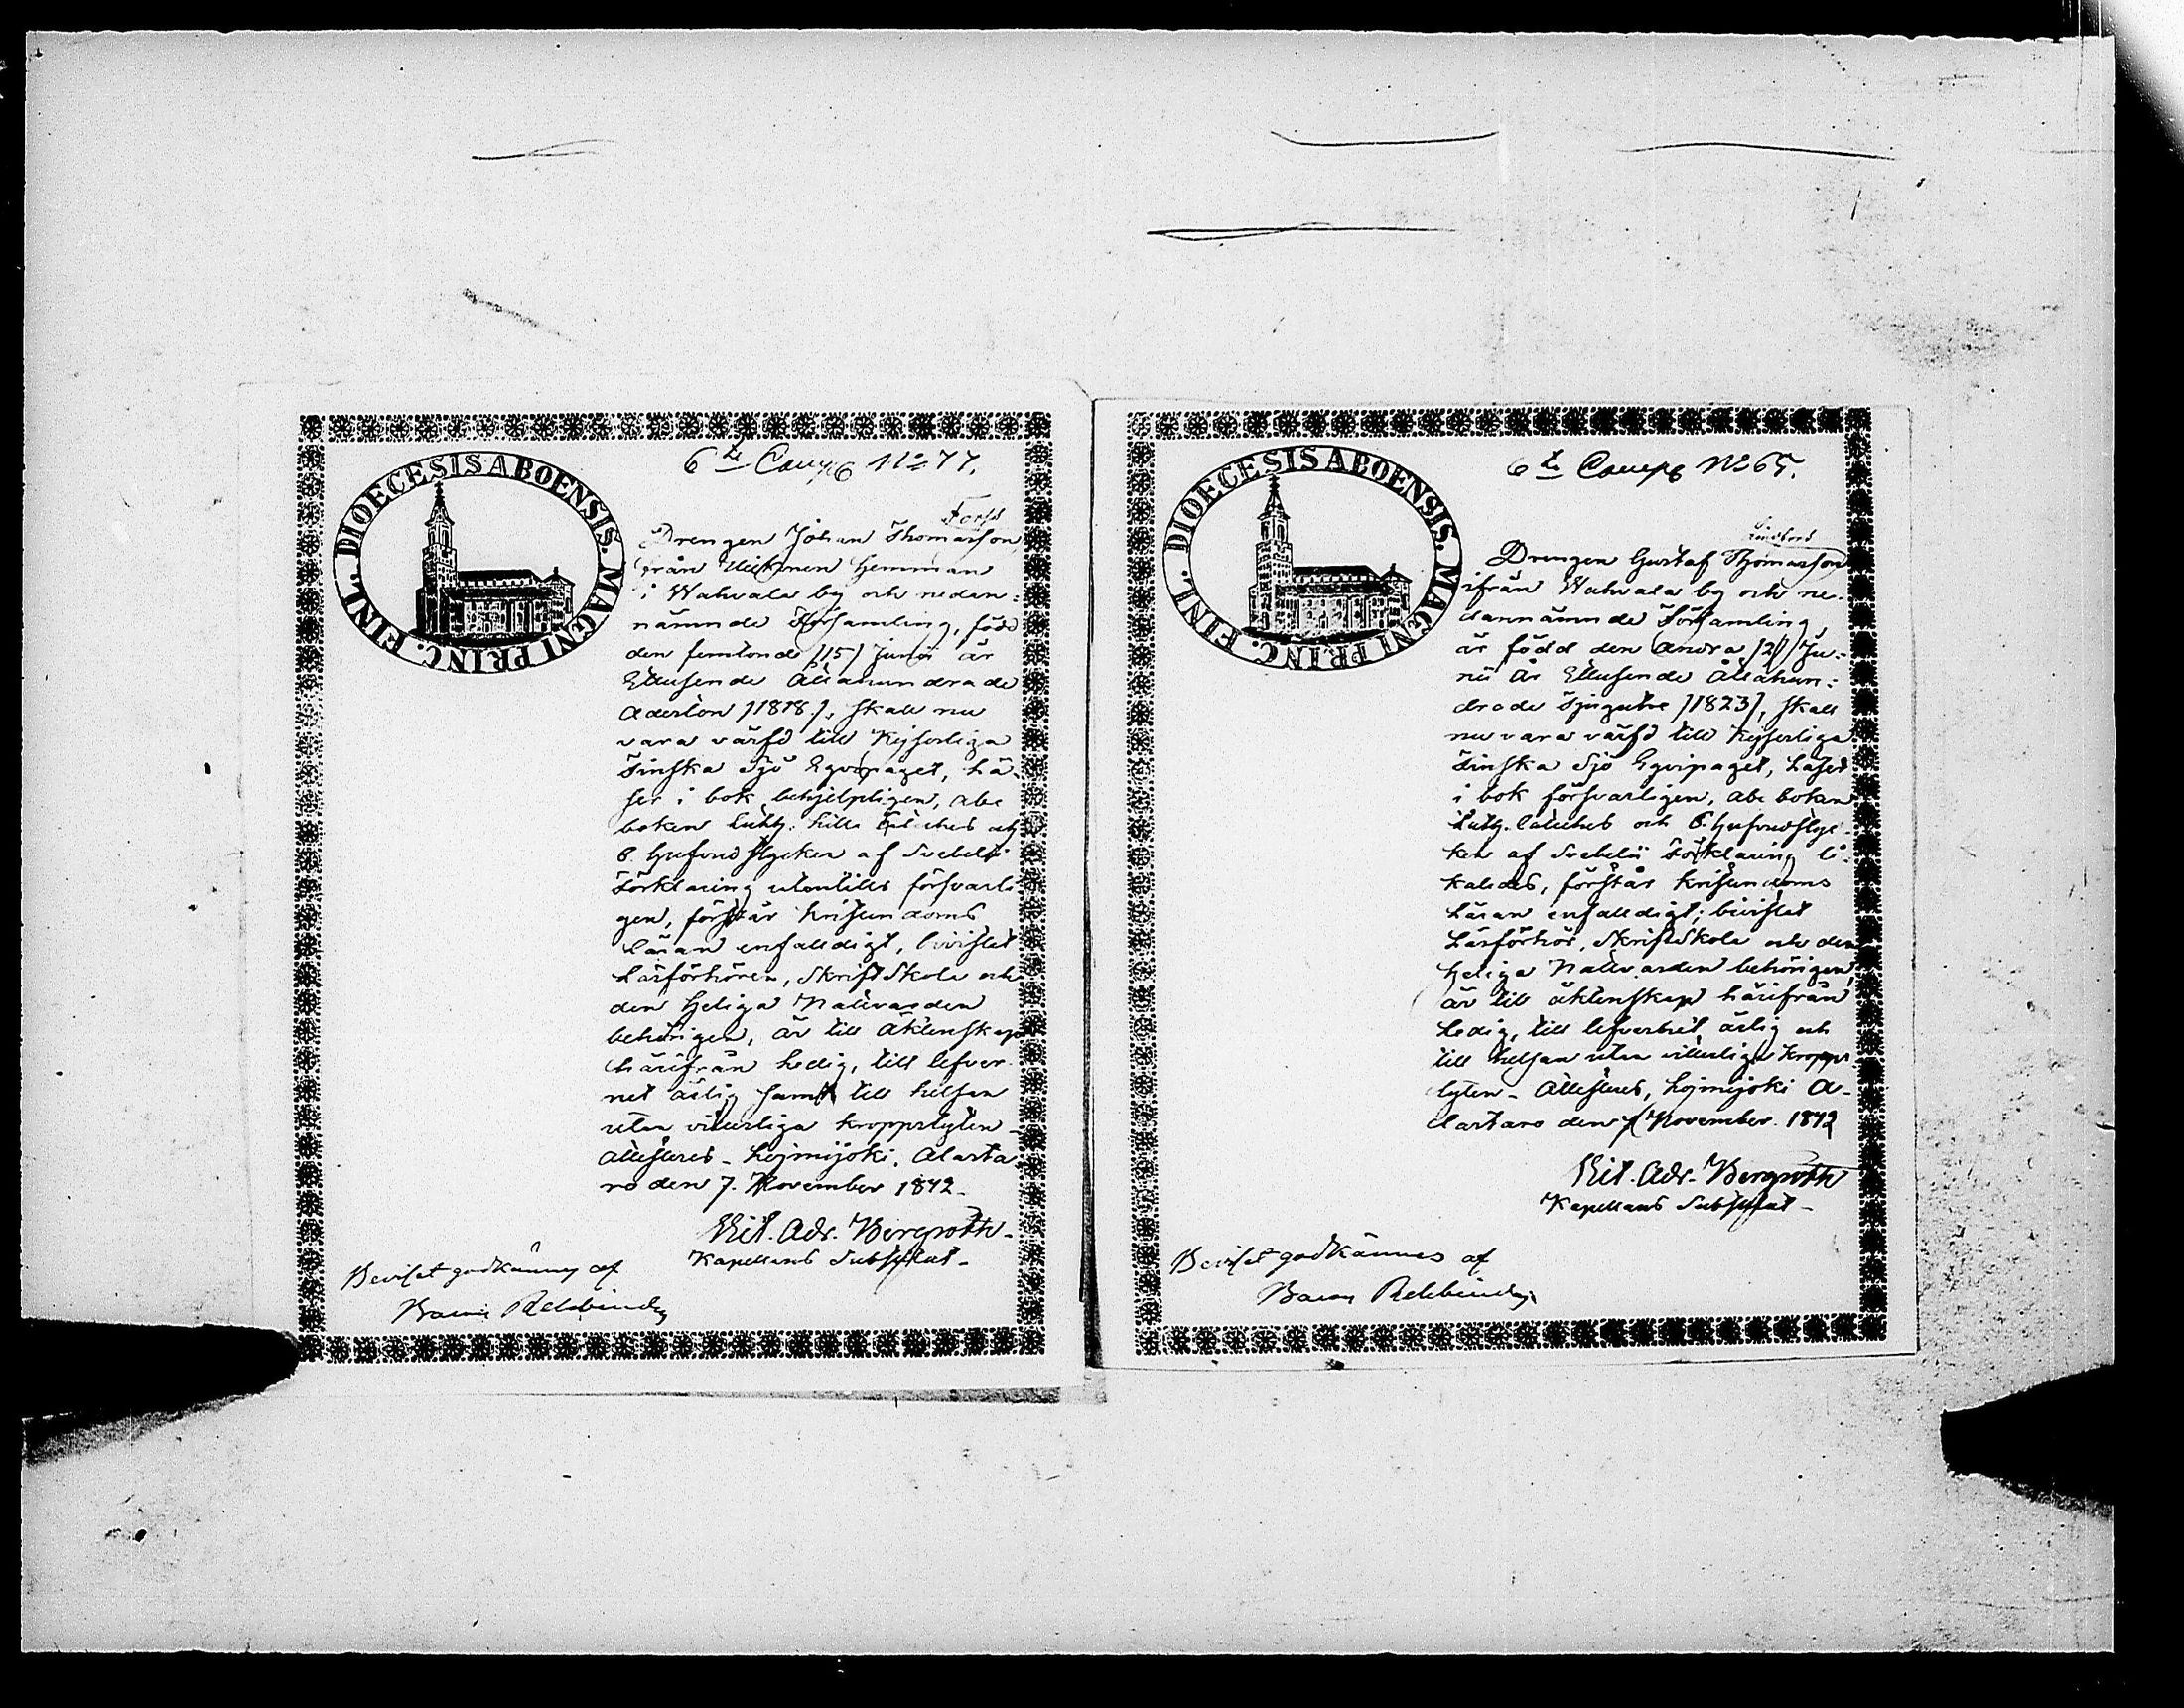 DIOECESIS ABOENSIS. MAGNI PRINC. FINL.
6te Comp No 77.
Forss
Drengen Johan Thomasson,
från Mickonen Hemman
i Wahvala by och nedan=
nämnde Församling, född
den femtonde /15/ Junii år
Ettusende Åttahundrade
Aderton /1818/, skall nu
vara värfd till Kejserliga
Finska Sjö Eqvipaget, Lä-
ser i bok behjelpligen, abc
boken Luth: lilla Catches och
B. Hufvudstycken af Svebelii
Förklaring utantills försvarli-
gen, förstår Kristendoms
Läran enfalldigt, bivistat
Läsförhören, Skriftskola och
den Heliga Nattvarden
behörigen, är till Äktenskap
härifrån ledig, till lefver-
net ärlig samt till helsan
utan vitterliga kroppslyten -
Attesteras - Loimijoki, Alasta-
ro den 7. November 1842 -
Vit. Adr. Bergroth -
Kapellans Substitut -
Beviset godkännes af
Baron Rehbinder
DIOECESIS ABOENSIS. MAGNI PRINC. FINL.
6te Comp No 65.
Lindfors
Drengen Gustaf Thomasson
ifrån Wahvala by och ne-
dannämnde Församling,
är född den andra /2/ Ju-
nii År Ettusende Åttahun=
drade Tjugutre /1823/, skall
nu vara värfd till Kejserliga
Finska Sjö Eqvipaget, Läser
i bok försvarligen, abc boken
Luth. Catches och B. Hufvudstyc-
ken af Svebelii Förklaring li-
kaledes, förstår Kristendoms
Läran enfalldigt; bivistat
Läsförhör, Skriftskola och den
Heliga Nattvarden behörigen,
är till äktenskap härifrån
Ledig, till lefvernet ärlig och
till helsan utan vitterliga kropps-
lyten - Attesteras, Lojmijoki A-
lastaro den 7 November 1842
Vit. Adr. Bergroth
Kapellans Substitut -
Beviset godkännes af
Baron Rehbinder